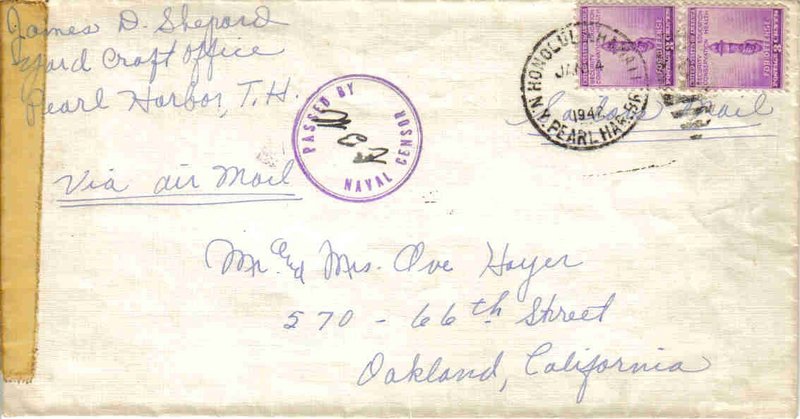 James D. Shepard
Yard Craft Office
Pearl Harbor, T.H.
Via air Mail
PASSED BY
NAVAL CENSOR
HONOLULU HAWAII
JAN 4
1942
N.Y. PEARL HAR. BR.
FOR DEFENSE
POSTAGE 3 CENTS
FOR DEFENSE
POSTAGE 3 CENTS
Mail
Mr. and Mrs. Ove Hoyer
570 - 66th Street
Oakland, California